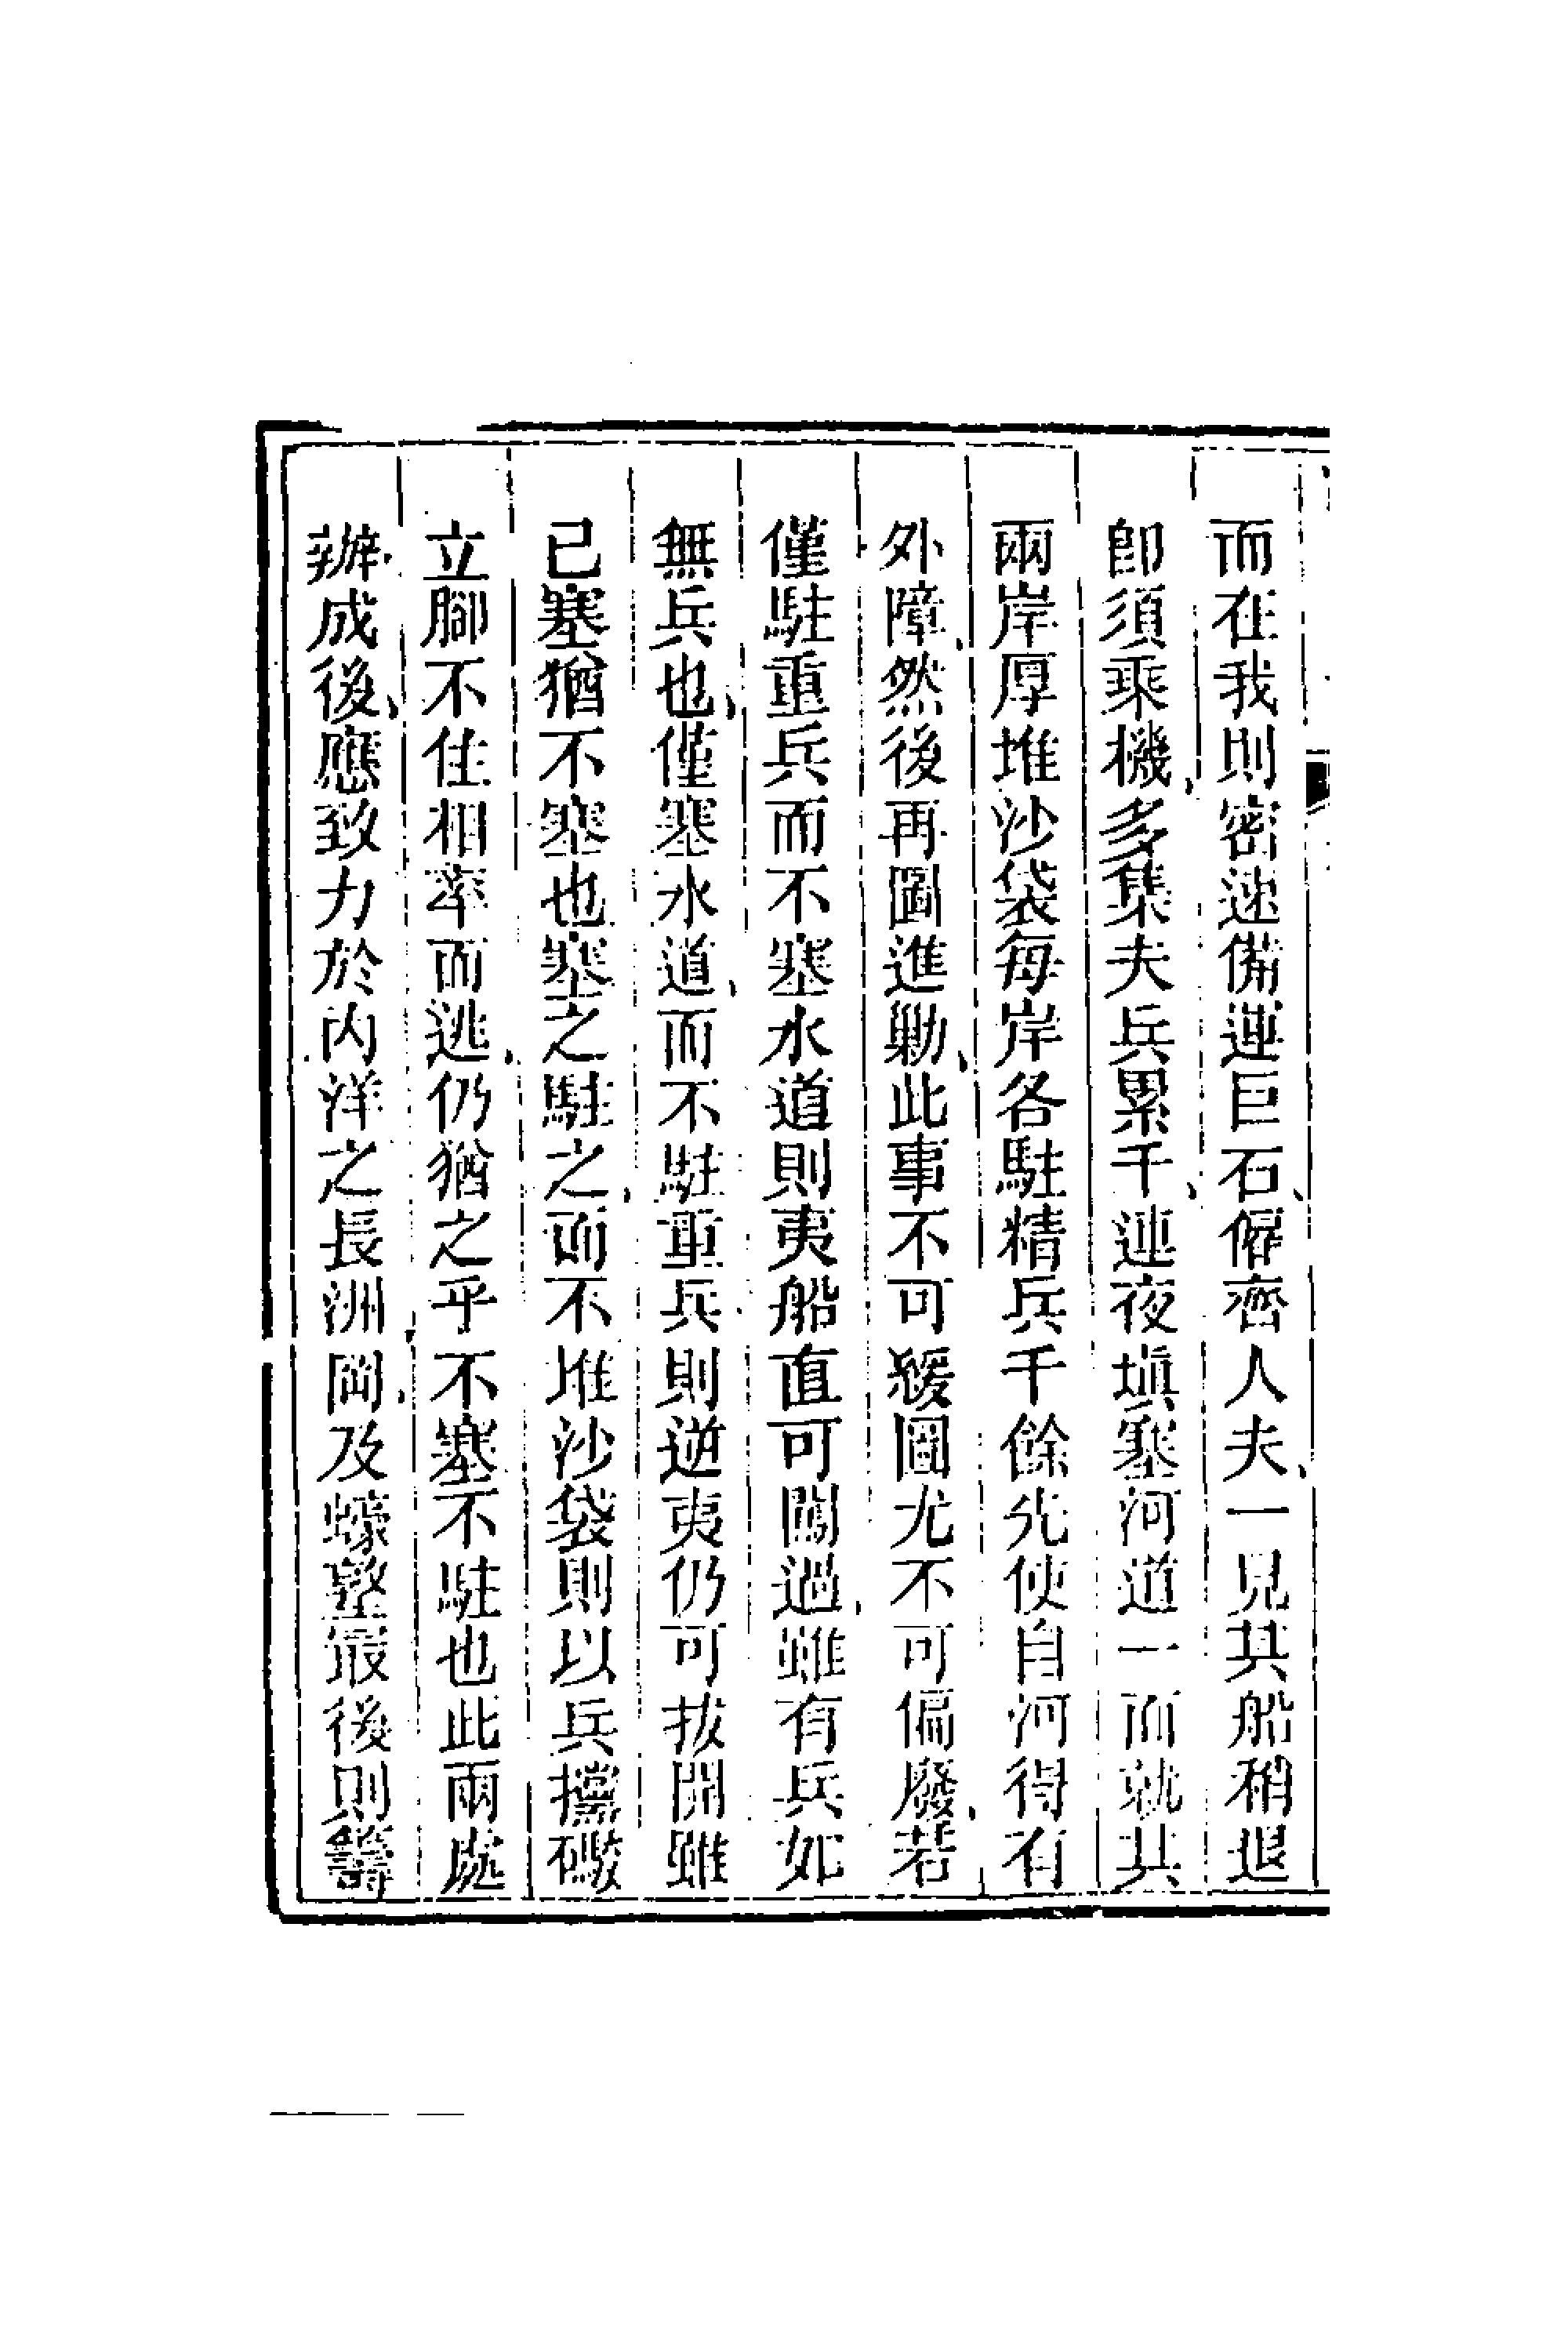 而在我則密速備運巨石、僱齊人夫、一見其船稍退
卽須乘機、多集夫兵累千、連夜塡塞河道一面就其
兩岸厚堆沙袋每岸各駐精兵千餘先使自河得有
外障、然後再圖進勦、此事不可緩圖尤不可偏廢、若
僅駐重兵而不塞水道則夷船直可闖過、雖有兵如
無兵也、僅塞水道、而不駐重兵則逆夷仍可拔開雖
已塞猶不塞也塞之駐之、而不堆沙袋則以兵擋礮
立腳不住相率而逃、仍猶之乎不塞不駐也此兩處
辦成後、應致力於內洋之長洲岡、及蠔墪最後則籌